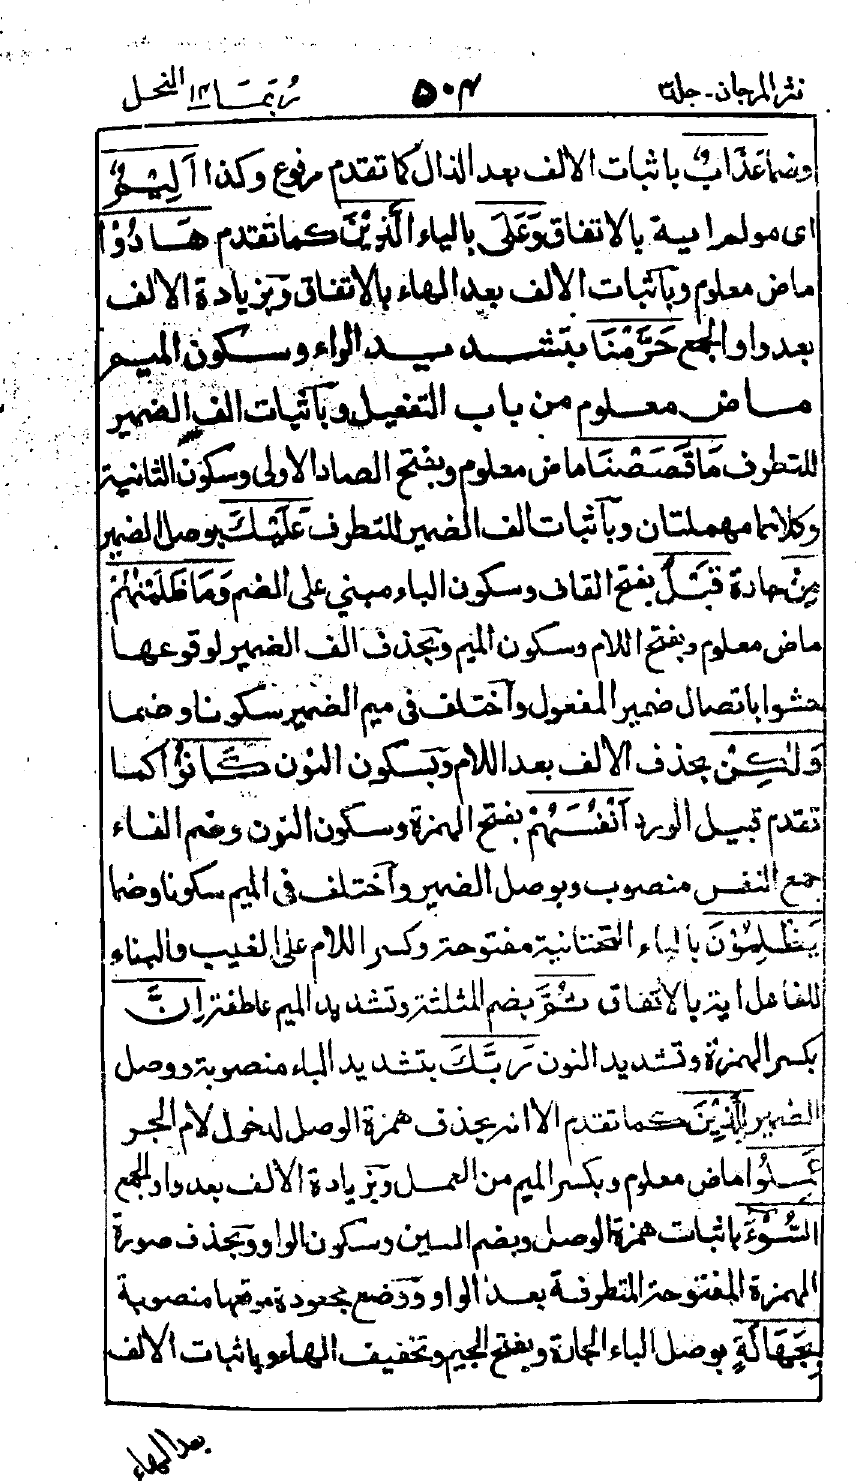 نثر المرجان - جلد ٣
٥٠٤
ربما ١٤ النحل
وضما عَذَابٌ باثبات الالف بعد الذال كما تقدم مرفوع وكذا اَلِيْمٌ
اى مولم رايـة بالاتفاق وَعَلَى بالياء الَّذِيْنَ كما تقدم هَادُوْا
ماض معلوم وباثبات الالف بعد الهاء بالاتفاق وبزيادة الالف
بعد واو الجمع حَرَّمْنَا بتشديد الراء وسكون الميم
ماض معلوم من باب التفعيل وباثبات الف الضمير
للتطرف مَا قَصَصْنَا ماض معلوم وبفتح الصاد الاولى وسكون الثانية
وكلاهما مهملتان وباثبات الف الضمير للتطرف عَلَيْكَ بوصل الضمير
مِنْ جارة قَبْلُ بفتح القاف وسكون الباء مبني على الضم وَمَا ظَلَمْنٰهُمْ
ماض معلوم وبفتح اللام وسكون الميم وبحذف الف الضمير لوقوعها
حشوا باتصال ضمير المفعول واختلف فى ميم الضمير سكونا وضما
وَلٰكِنْ بحذف الالف بعد اللام وبسكون النون كَانُوْا كما
تقدم قبيل الورد اَنْفُسَهُمْ بفتح الهمزة وسكون النون وضم الفاء
جمع النفس منصوب وبوصل الضمير واختلف فى الميم سكونا وضما
يَظْلِمُوْنَ بالياء التحتانية مفتوحة وكسر اللام على الغيب والبناء
للفاعل بالاتفاق ثُمَّ بضم المثلثة وتشديد الميم عاطفة اِنَّ
بكسر الهمزة وتشديد النون رَبَّكَ بتشديد الباء منصوبة ووصل
الضمير لِلَّذِيْنَ كما تقدم الا انه بحذف همزة الوصل لدخول لام الجر
عَمِلُوا ماض معلوم وبكسر الميم من العمل وبزيادة الالف بعد واو الجمع
السُّوْءَ باثبات همزة الوصل وبضم السين وسكون الواو وبحذف صورة
الهمزة المفتوحة المتطرفة بعد الواو ووضع مجعودة موقعها منصوبة
بِجَهَالَةٍ بوصل الباء الجارة وبفتح الجيم وتخفيف الهاء وباثبات الالف
بعد الهاء